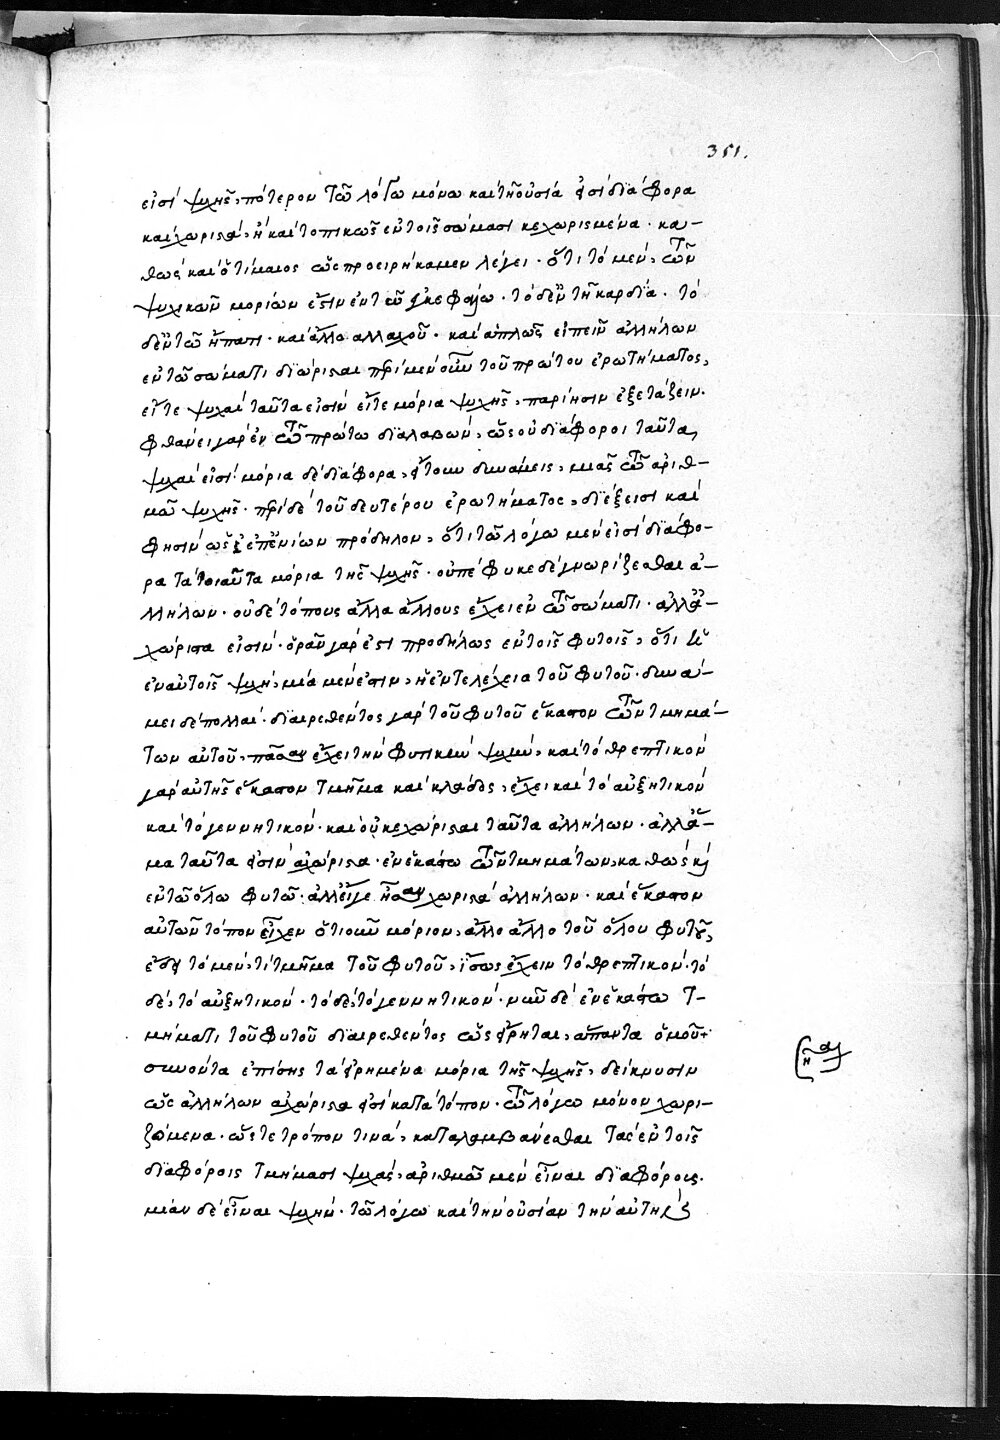 351.
εἰσὶ ψυχῆς, πότερον τῶ λόγω μόνω καὶ τῆ οὐσία εἰσὶ διάφορα
καὶ χωριστά, ἢ καὶ τοπικῶς ἐν τοῖς σώμασι κεχωρισμένα. κα-
θὼς καὶ ὁ τίμαιος ὡς προειρήκαμεν λέγει. ὅτι τὸ μὲν, τῶν
ψυχικῶν μορίων ἐστὶν ἐν τῶ ἐγκεφάλω. τὸ δ' ἐν τῆ καρδία. τὸ
δ' ἐν τῶ ἥπατι. καὶ ἄλλο ἀλλαχοῦ. καὶ ἁπλῶς εἰπεῖν ἀλλήλων
ἐν τῶ σώματι διώρισται περὶ μὲν οὖν τοῦ πρώτου ἐρωτήματος,
εἴτε ψυχαὶ ταῦτα εἰσὶν εἴτε μόρια ψυχῆς, παρίησιν ἐξετάζειν.
φθάνει γὰρ ἐν τῶ πρώτω διαλαβὼν, ὡς οὐ διάφοροι ταῦτα
ψυχαί εἰσι. μόρια δὲ διάφορα, ἤτοι δυνάμεις, μιᾶς τῶ ἀριθ-
μῶ ψυχῆς. περὶ δὲ τοῦ δευτέρου ἐρωτήματος, διέξεισι καὶ
φησὶν ὡς ἐπ' ἐνίων πρόδηλον, ὅτι τῶ λόγω μὲν εἰσὶ διάφο-
ρα τὰ τοιαῦτα μόρια τῆς ψυχῆς. οὐ πέφυκε δὲ γνωρίζεσθαι ἀ-
λλήλων. οὐδὲ τόπους ἄλλα ἄλλους ἔχει ἐν τῶ σώματι. ἀλλ' ἀ-
χώριστα εἰσίν. ὁρᾶν γάρ ἐστι προδήλως ἐν τοῖς φυτοῖς, ὅτι ἡ
ἐν αὐτοῖς ψυχὴ, μία μὲν ἐστιν, ἡ ἐντελέχεια τοῦ φυτοῦ. δυνά-
μει δὲ πολλαί. διαιρεθέντος γὰρ τοῦ φυτοῦ ἕκαστον τῶν τμημά-
των αὐτοῦ, πᾶσαν ἔχει τὴν φυτικὴν ψυχὴν, καὶ τὸ θρεπτικὸν
γὰρ αὐτῆς ἕκαστον τμῆμα καὶ κλάδος, ἔχει καὶ τὸ αὐξητικὸν
καὶ τὸ γεννητικόν. καὶ οὐ κεχώρισται ταῦτα ἀλλήλων. ἀλλ' ἅ-
μα ταῦτα ἐστὶν ἀχώριστα. ἐν ἑκάστω τῶν τμημάτων, καθὼς καὶ
ἐν τῶ ὅλω φυτῶ. ἀλλ' εἴγε ἦσαν χωριστὰ ἀλλήλων. καὶ ἕκαστον
αὐτῶν τόπον εἶχεν ὁτιοῦν μόριον, ἄλλο ἄλλο τοῦ ὅλου φυτοῦ,
ἔδει τὸ μὲν, τι τμῆμα τοῦ φυτοῦ, ἴσως ἔχειν τὸ θρεπτικόν. τὸ
δὲ, τὸ αὐξητικόν. τὸ δὲ, τὸ γεννητικόν. νῦν δὲ ἐν ἑκάστω τ-
μήματι τοῦ φυτοῦ διαιρεθέντος ὡς εἴρηται, ἅπαντα ὁμοῦ
συνόντα ἐπίσης τὰ εἰρημένα μόρια τῆς ψυχῆς, δείκνυσιν
ὡς ἀλλήλων ἀχώριστα εἰσὶ κατὰ τόπον. τῶ λόγω μόνον χωρι-
ζόμενα. ὥστε τρόπον τινὰ, καταλαμβάνεσθαι τὰς ἐν τοῖς
διαφόροις τμήμασι ψυχὰς, ἀριθμῶ μὲν εἶναι διαφόρους.
μίαν δὲ εἶναι ψυχὴν. τῶ λόγω καὶ τὴν οὐσίαν τὴν αὐτῆς